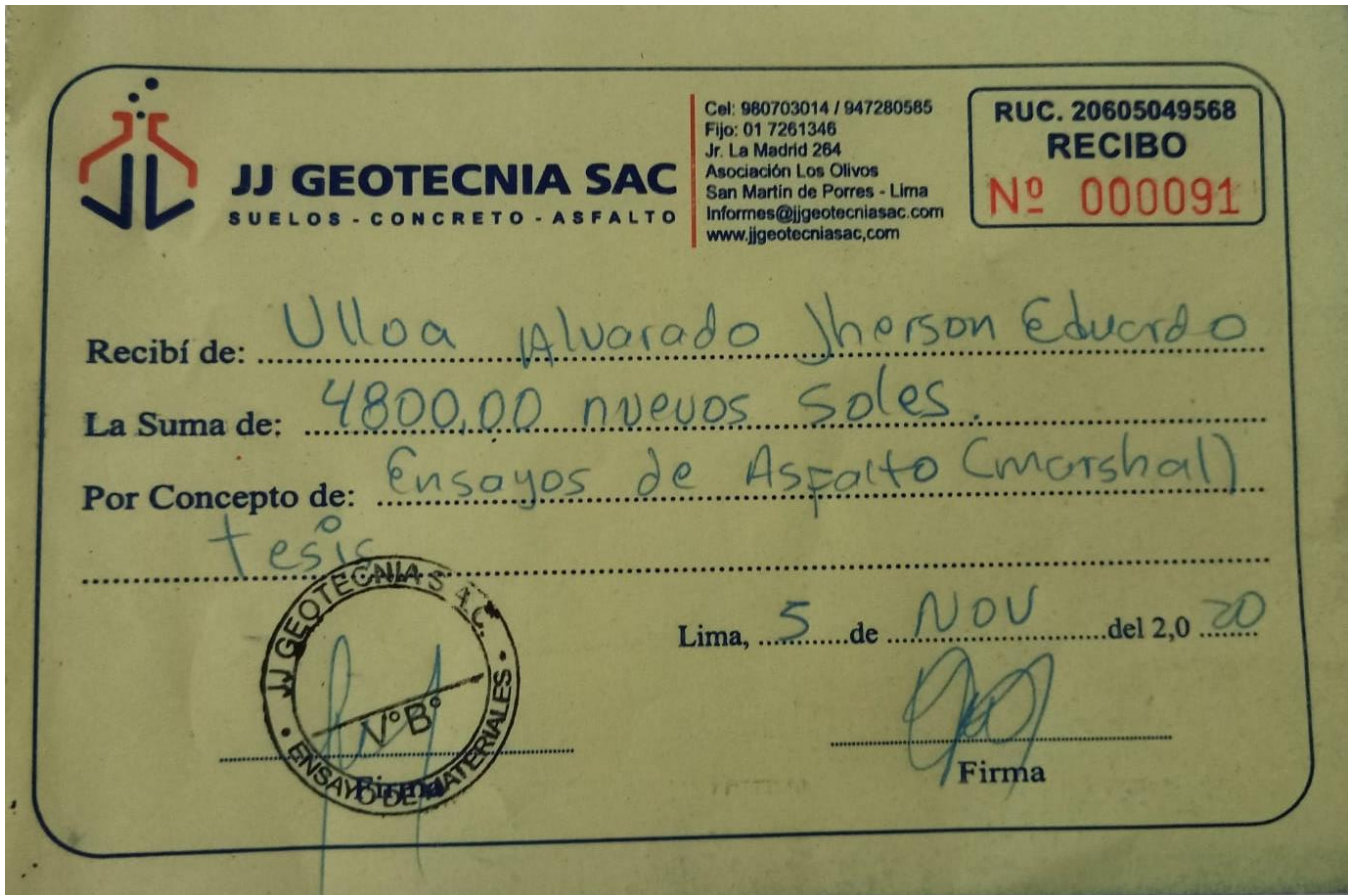 JJ GEOTECNIA SAC
SUELOS - CONCRETO - ASFALTO
Cel: 980703014 / 947280585
Fijo: 01 7261346
Jr. La Madrid 264
Asociación Los Olivos
San Martín de Porres - Lima
Informes@jjgeotecniasac.com
www.jjgeotecniasac,com
RUC. 20605049568
RECIBO
Nº 000091
Recibí de: Ulloa Alvarado Jherson Eduardo
La Suma de: 4800,00 nuevos soles.
Por Concepto de: Ensayos de Aspalto (marshal)
tesis
Lima, 5 de NOV del 2,0 20
JJ GEOTECNIA S.A.C.
V°B°
ENSAYO DE MATERIALES
Firma
Firma